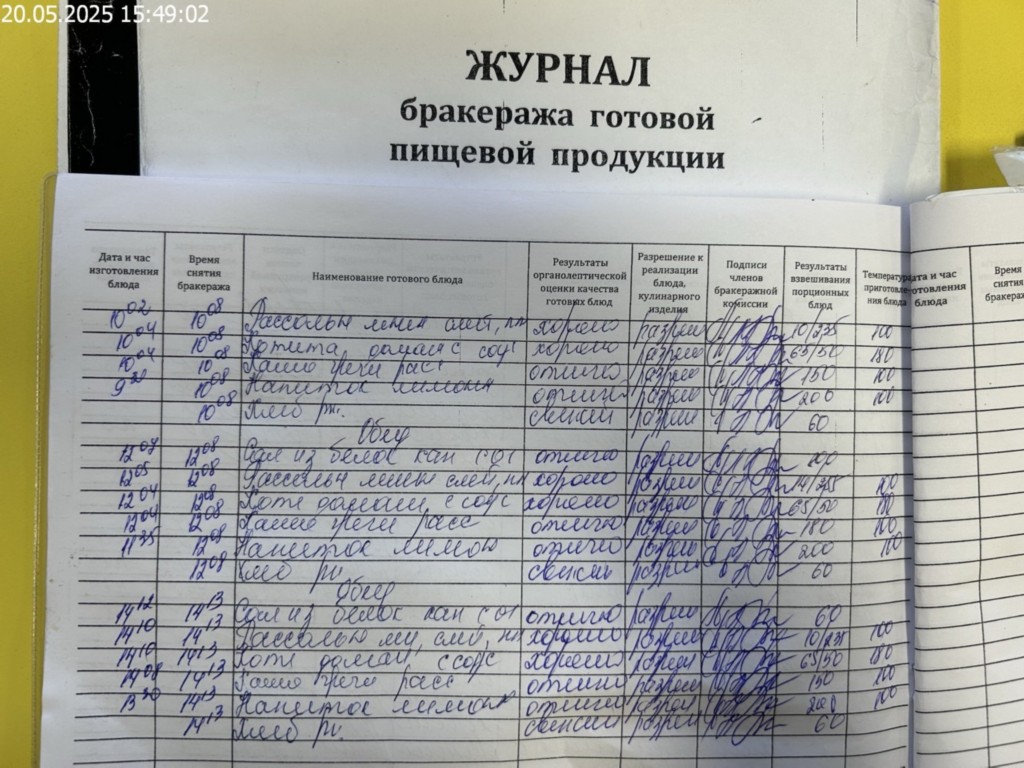 20.05.2025 15:49:02
ЖУРНАЛ
бракеража готовой
пищевой продукции
Дата и час изготовления блюда Время снятия бракеража Наименование готового блюда Результаты органолептической оценки качества готовых блюд Разрешение к реализации блюда, кулинарного изделия Подписи членов бракеражной комиссии Результаты взвешивания порционных блюд Температура приготовле- ния блюда
дата и час готовления блюда Время снятия бракера
10 02 10 08 Рассольн ленин смет, хорошо разреш 10/235 100
10 04 10 08 Котлета домаш с соус хорошо разреш 65/50 180
10 04 10 08 Каша греч расс отлично разреш 150 100
9 30 10 08 Напиток лимонн отлично разреш 200 100
10 08 Хлеб рж. свежий разреш 60
Обед
12 07 12 08 Сал из белок кап с отлично разреш
12 05 12 08 Рассольн ленин смет, хорошо разреш 100
12 04 12 08 Котл домаш с соус хорошо разреш 65/50 180
12 04 12 08 Каша греч расс отлично разреш 180 100
11 35 12 08 Напиток лимон отлично разреш 200 100
12 08 Хлеб рж. свежий разреш 60
Обед
14 12 14 13 Сал из белок кап с отлично разреш 60
14 10 14 13 Рассольн смет, хорошо разреш 10/235 100
14 10 14 13 Котл домаш с соус хорошо разреш 65/50 180
14 08 14 13 Каша греч расс отлично разреш 150 100
13 30 14 13 Напиток лимон отлично разреш 200 100
14 13 Хлеб рж. свежий разреш 60